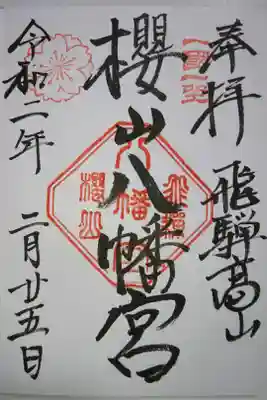 奉拝
飛驒高山
櫻山八幡宮
八幡
櫻山
令和二年
二月廿五日